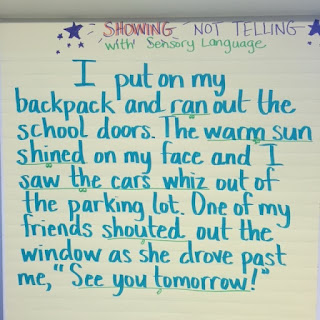 SHOWING NOT TELLING
with Sensory Language
I put on my
backpack and ran out the
school doors. The warm sun
shined on my face and I
saw the cars whiz out of
the parking lot. One of my
friends shouted out the
window as she drove past
me, "See you tomorrow!"